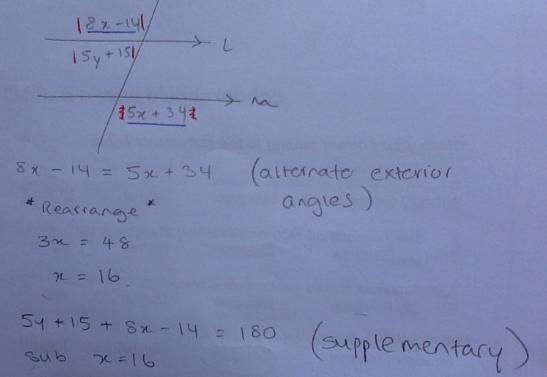 |8x-14|
L
|5y+15|
m
5x+34
8x - 14 = 5x + 34 (alternate exterior
*Rearrange* angles)
3x = 48
x = 16.
5y + 15 + 8x - 14 = 180 (supplementary)
sub x=16